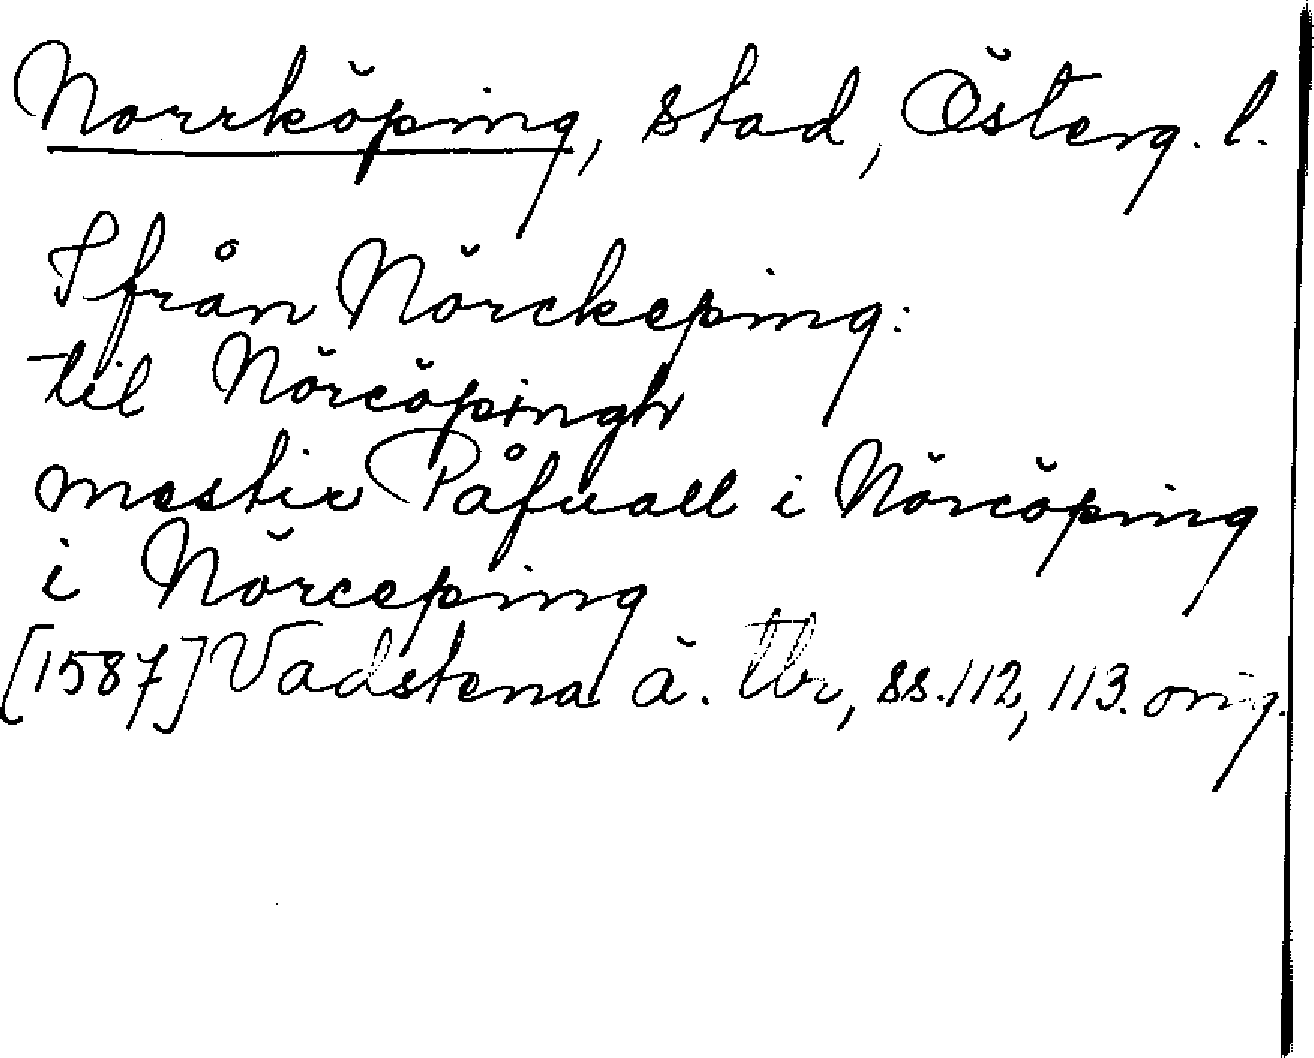 Norrköping, stad, Österg. l.
Ifrån Nörckeping:
til Nörcöpingh
mestir Påfuall i Nörcöping
i Nörceping
[1587] Vadstena ä. tbr, ss. 112, 113. orig.